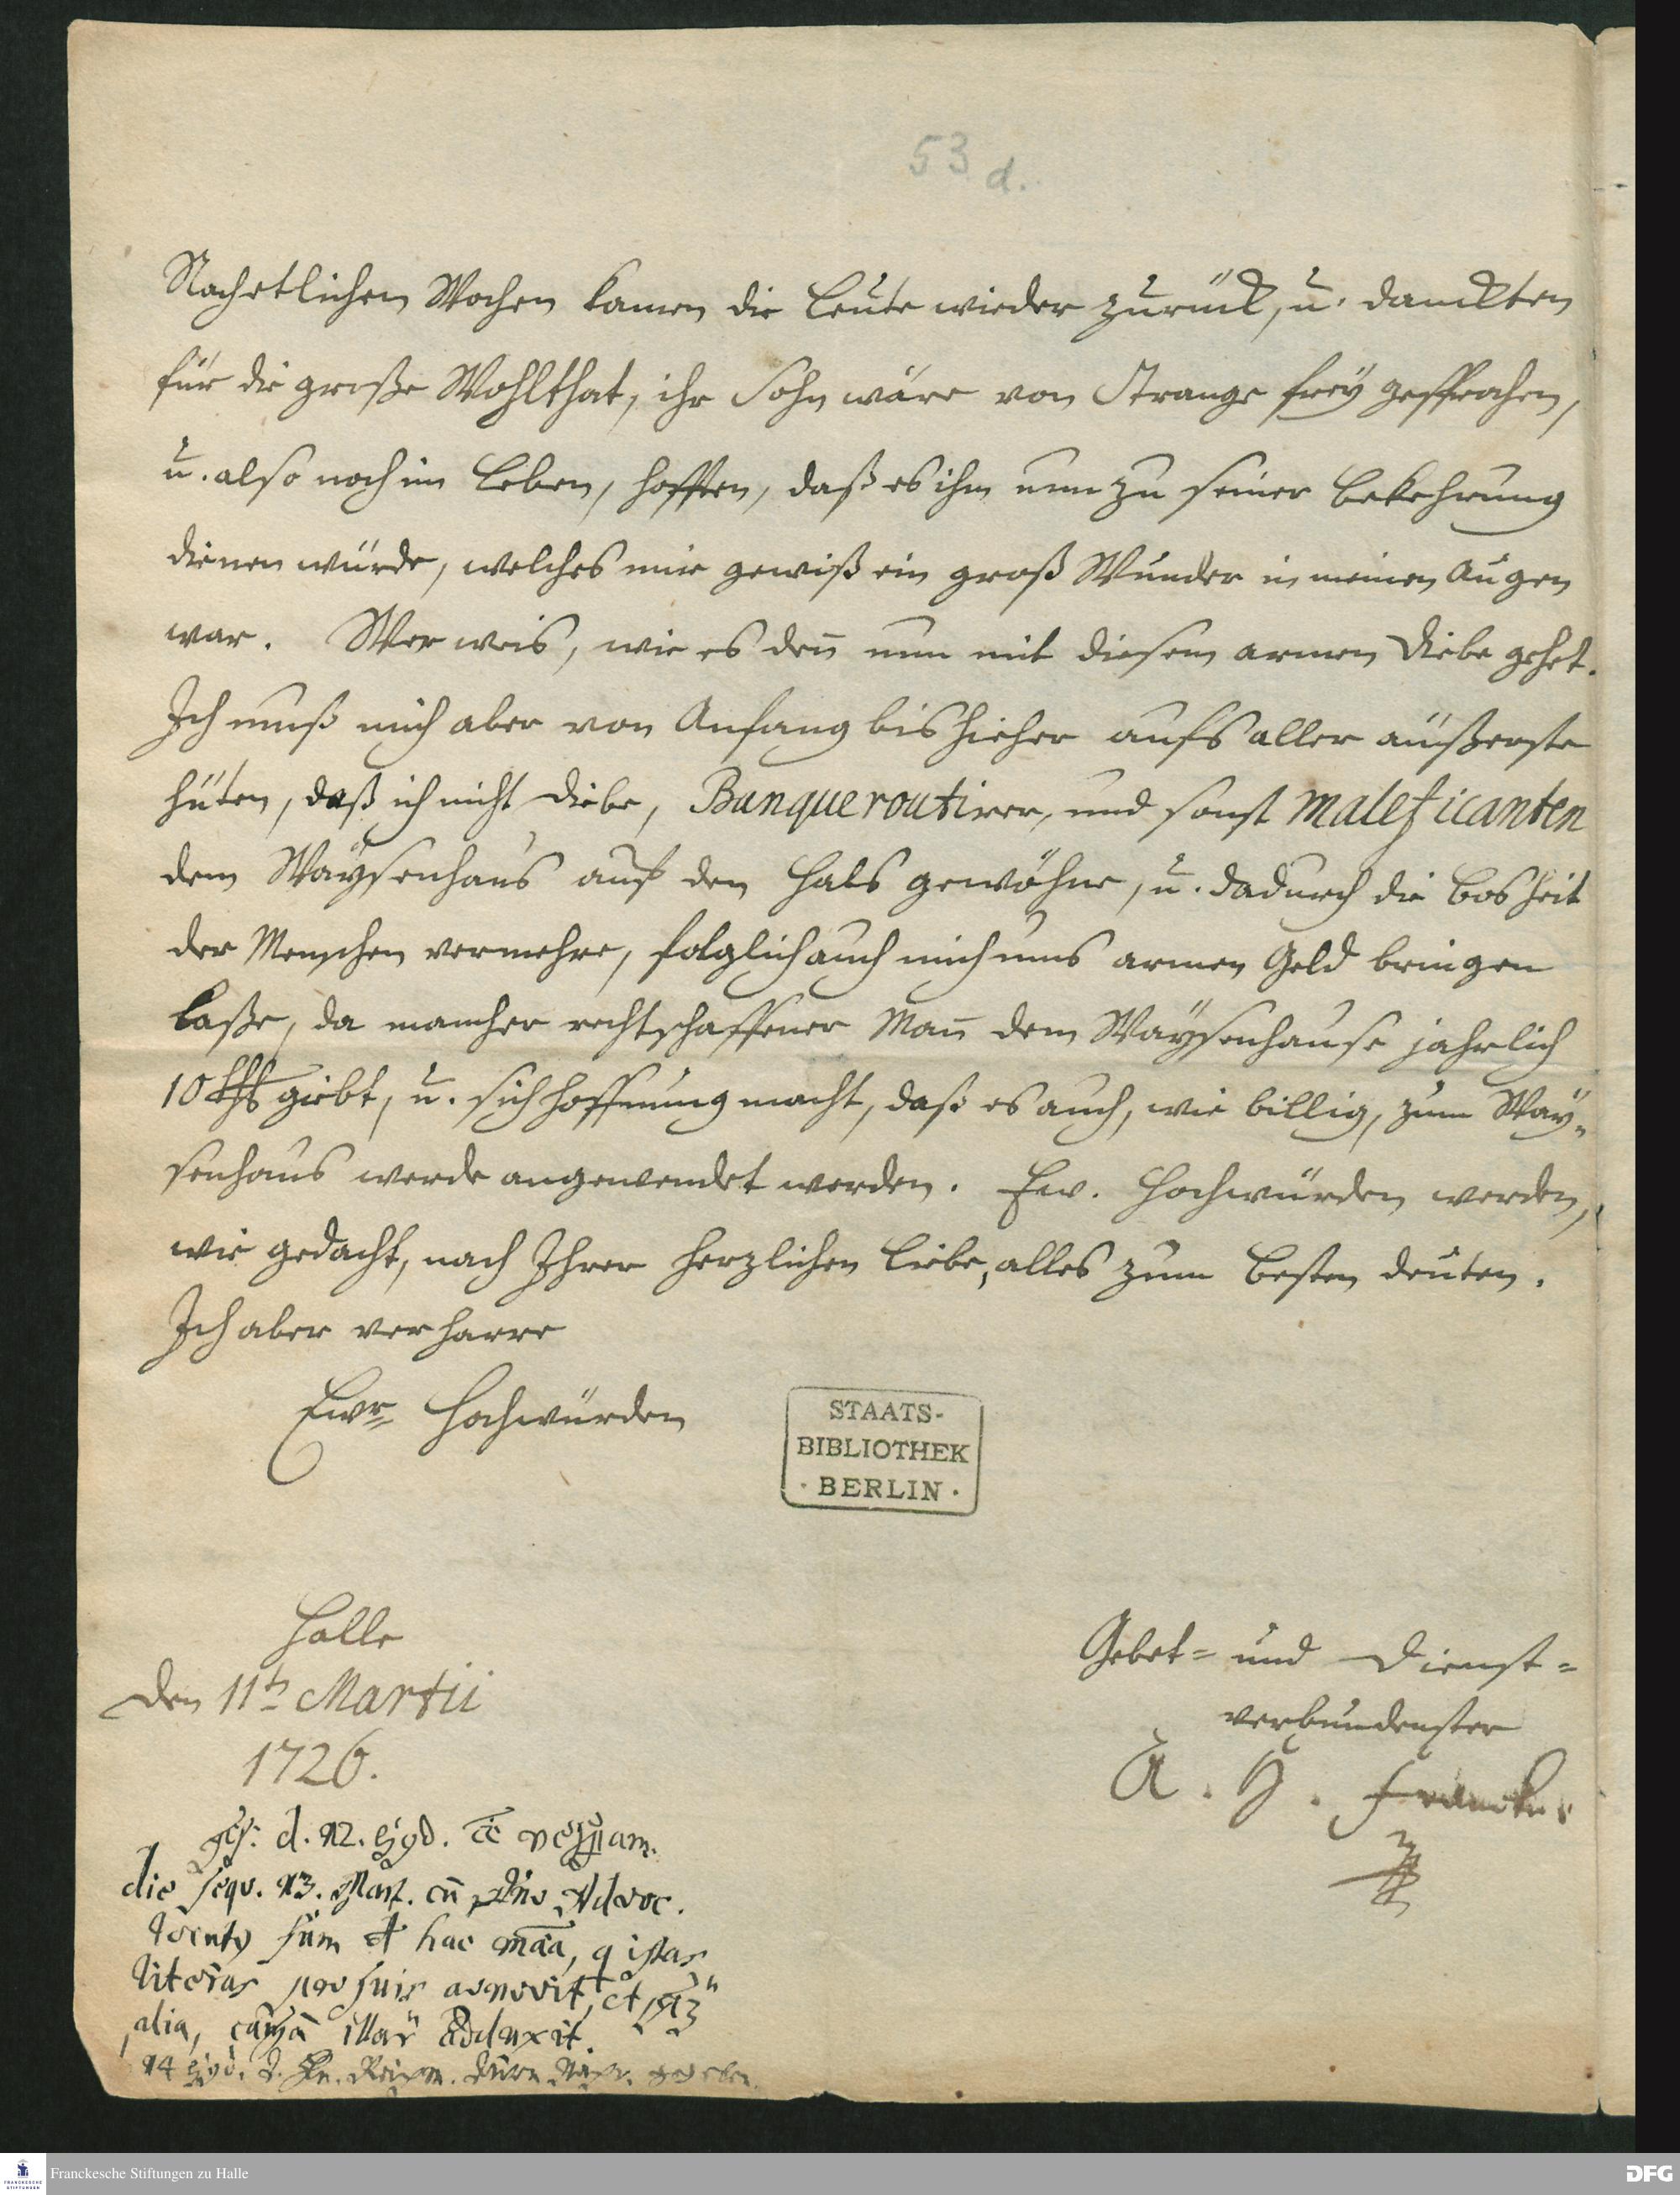 53 d.
Nach etlichen Wochen kamen die Leute wieder zurück, u. danckten
für die große Wohlthat, ihr Sohn wäre von Strange frey gesprochen,
u. also noch im Leben, hofften, daß es ihm nun zu seiner Bekehrung
dienen würde, welches mir gewiß ein groß Wunder in meinen Augen
war. Wer weis, wie es den̄ nun mit diesem armen Diebe gehet.
Ich muß mich aber von Anfang bis hieher aufs aller äußerste
hüten, daß ich nicht Diebe, Banqueroutirer, und sonst Maleficanten
dem Waysenhaus auf den Hals gewöhne, u. dadurch die Bosheit
der Menschen vermehre, folglich auch mich ums armen Geld bringen
laße, da mancher rechtschaffener Man̄ dem Waysenhause jahrlich
10 rthl giebt, u. sich Hoffnung macht, daß es auch, wie billig, zum Way-
senhaus werde angewendet werden. Ew. Hochwürden werden,
wie gedacht, nach Ihrer herzlichen Liebe, alles zum Besten deuten.
Ich aber verharre
Ewr. Hochwürden
STAATS-
BIBLIOTHEK
· BERLIN ·
Halle
den 11ten Martii
1726.
Gebet- und Dienst-
verbundenster
A. H. Francke
d. 12. ejusd.
die sequ. 13. Mart. Advoc.
hac
literas pro suis agnovit, et
alia, adduxit.
14 ejusd.
Franckesche Stiftungen zu Halle
FRANCKESCHE
STIFTUNGEN
DFG